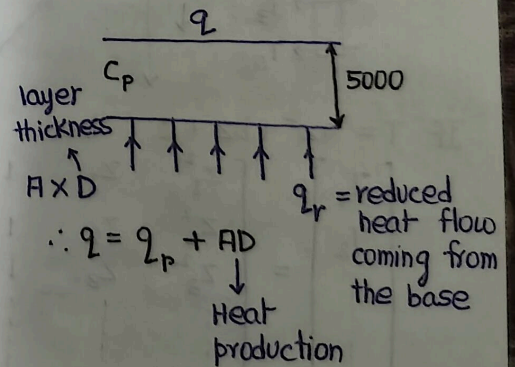 q
Cp
5000
layer
thickness
A X D
qr = reduced
heat flow
coming from
the base
∴ q = qp + AD
Heat
production